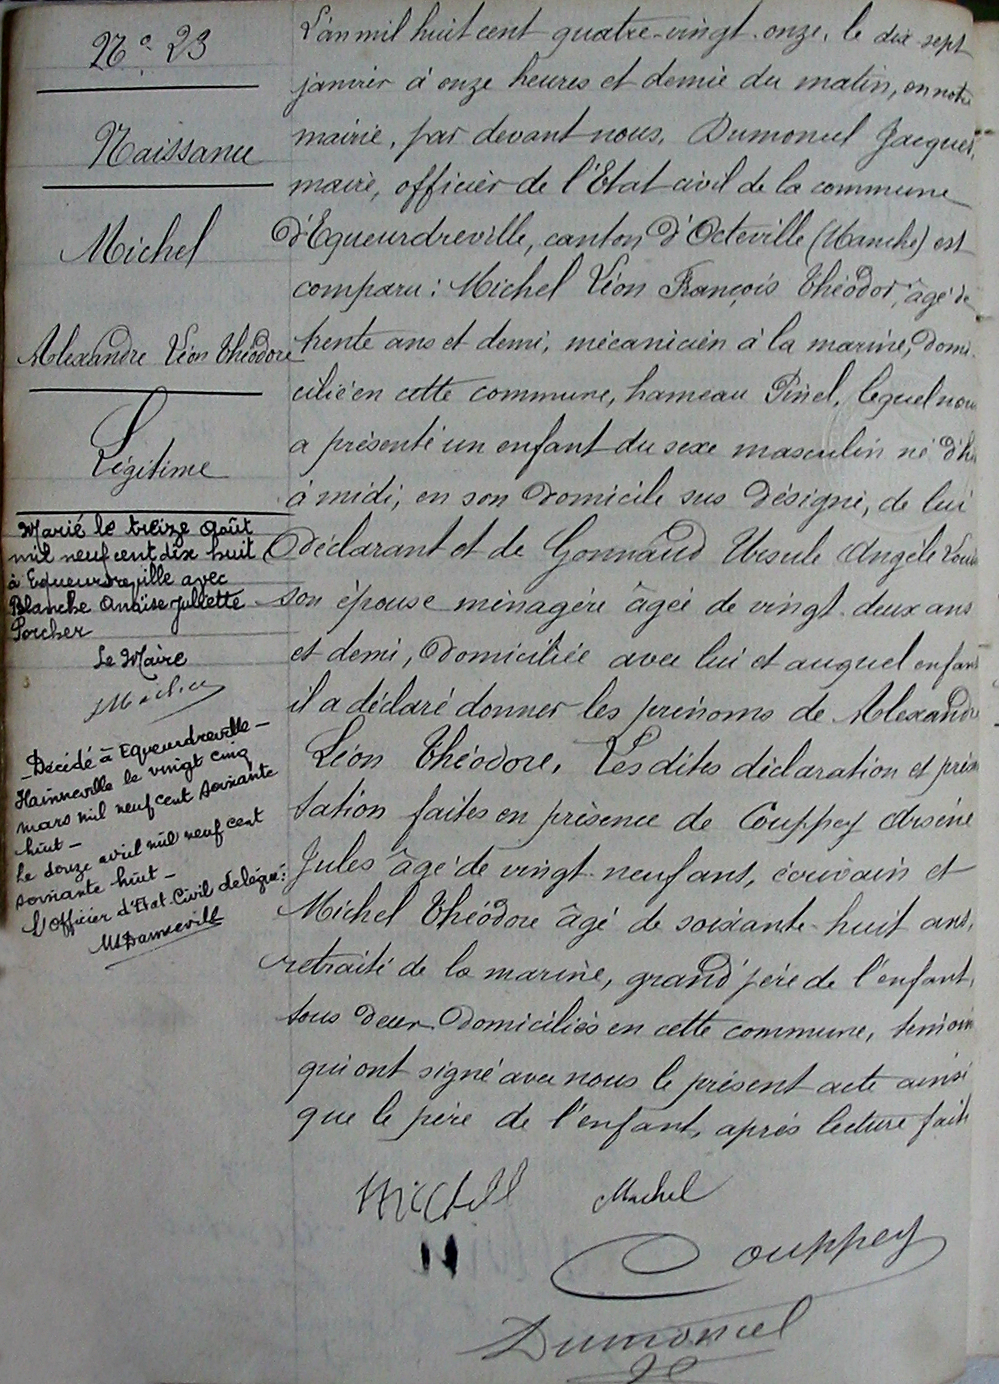 No. 23
Naissance
Michel
Alexandre Léon Théodore
Légitime
Marié le treize Août
mil neuf cent dix huit
à Equeurdreville avec
Blanche Anaïse Juliette
Porcher
Le Maire
Décédé à Equeurdreville -
Hainneville le vingt cinq
mars mil neuf cent soixante
huit -
Le douze avril mil neuf cent
soixante-huit -
L'Officier d'Etat-Civil délégué:
L'an mil huit cent quatre-vingt-onze, le dix-sept
janvier à onze heures et demie du matin, en notre
mairie, par devant nous, Dumoncel Jacques,
maire, officier de l'Etat civil de la commune
d'Equeurdreville, canton d'Octeville (Manche) est
comparu: Michel Léon François Théodor, âgé de
trente ans et demi, mécanicien à la marine, domi-
cilié en cette commune, hameau Pinel, lequel nous
a présenté un enfant du sexe masculin né d'h
à midi, en son domicile sus désigné, de lui
déclarant et de Gonnaud Ursule Angèle
son épouse ménagère âgée de vingt-deux ans
et demi, domiciliée avec lui et auquel enfant
il a déclaré donner les prénoms de Alexandre
Léon Théodore. Les dites déclaration et présen
tation faites en présence de Couppey Arsène
Jules âgé de vingt-neuf ans, écrivain et
Michel Théodore âgé de soixante-huit ans,
retraité de la marine, grand'père de l'enfant,
tous deux domiciliés en cette commune, témoins
qui ont signé avec nous le présent acte ainsi
que le père de l'enfant, après lecture faite
Michel Michel
Couppey
Dumoncel